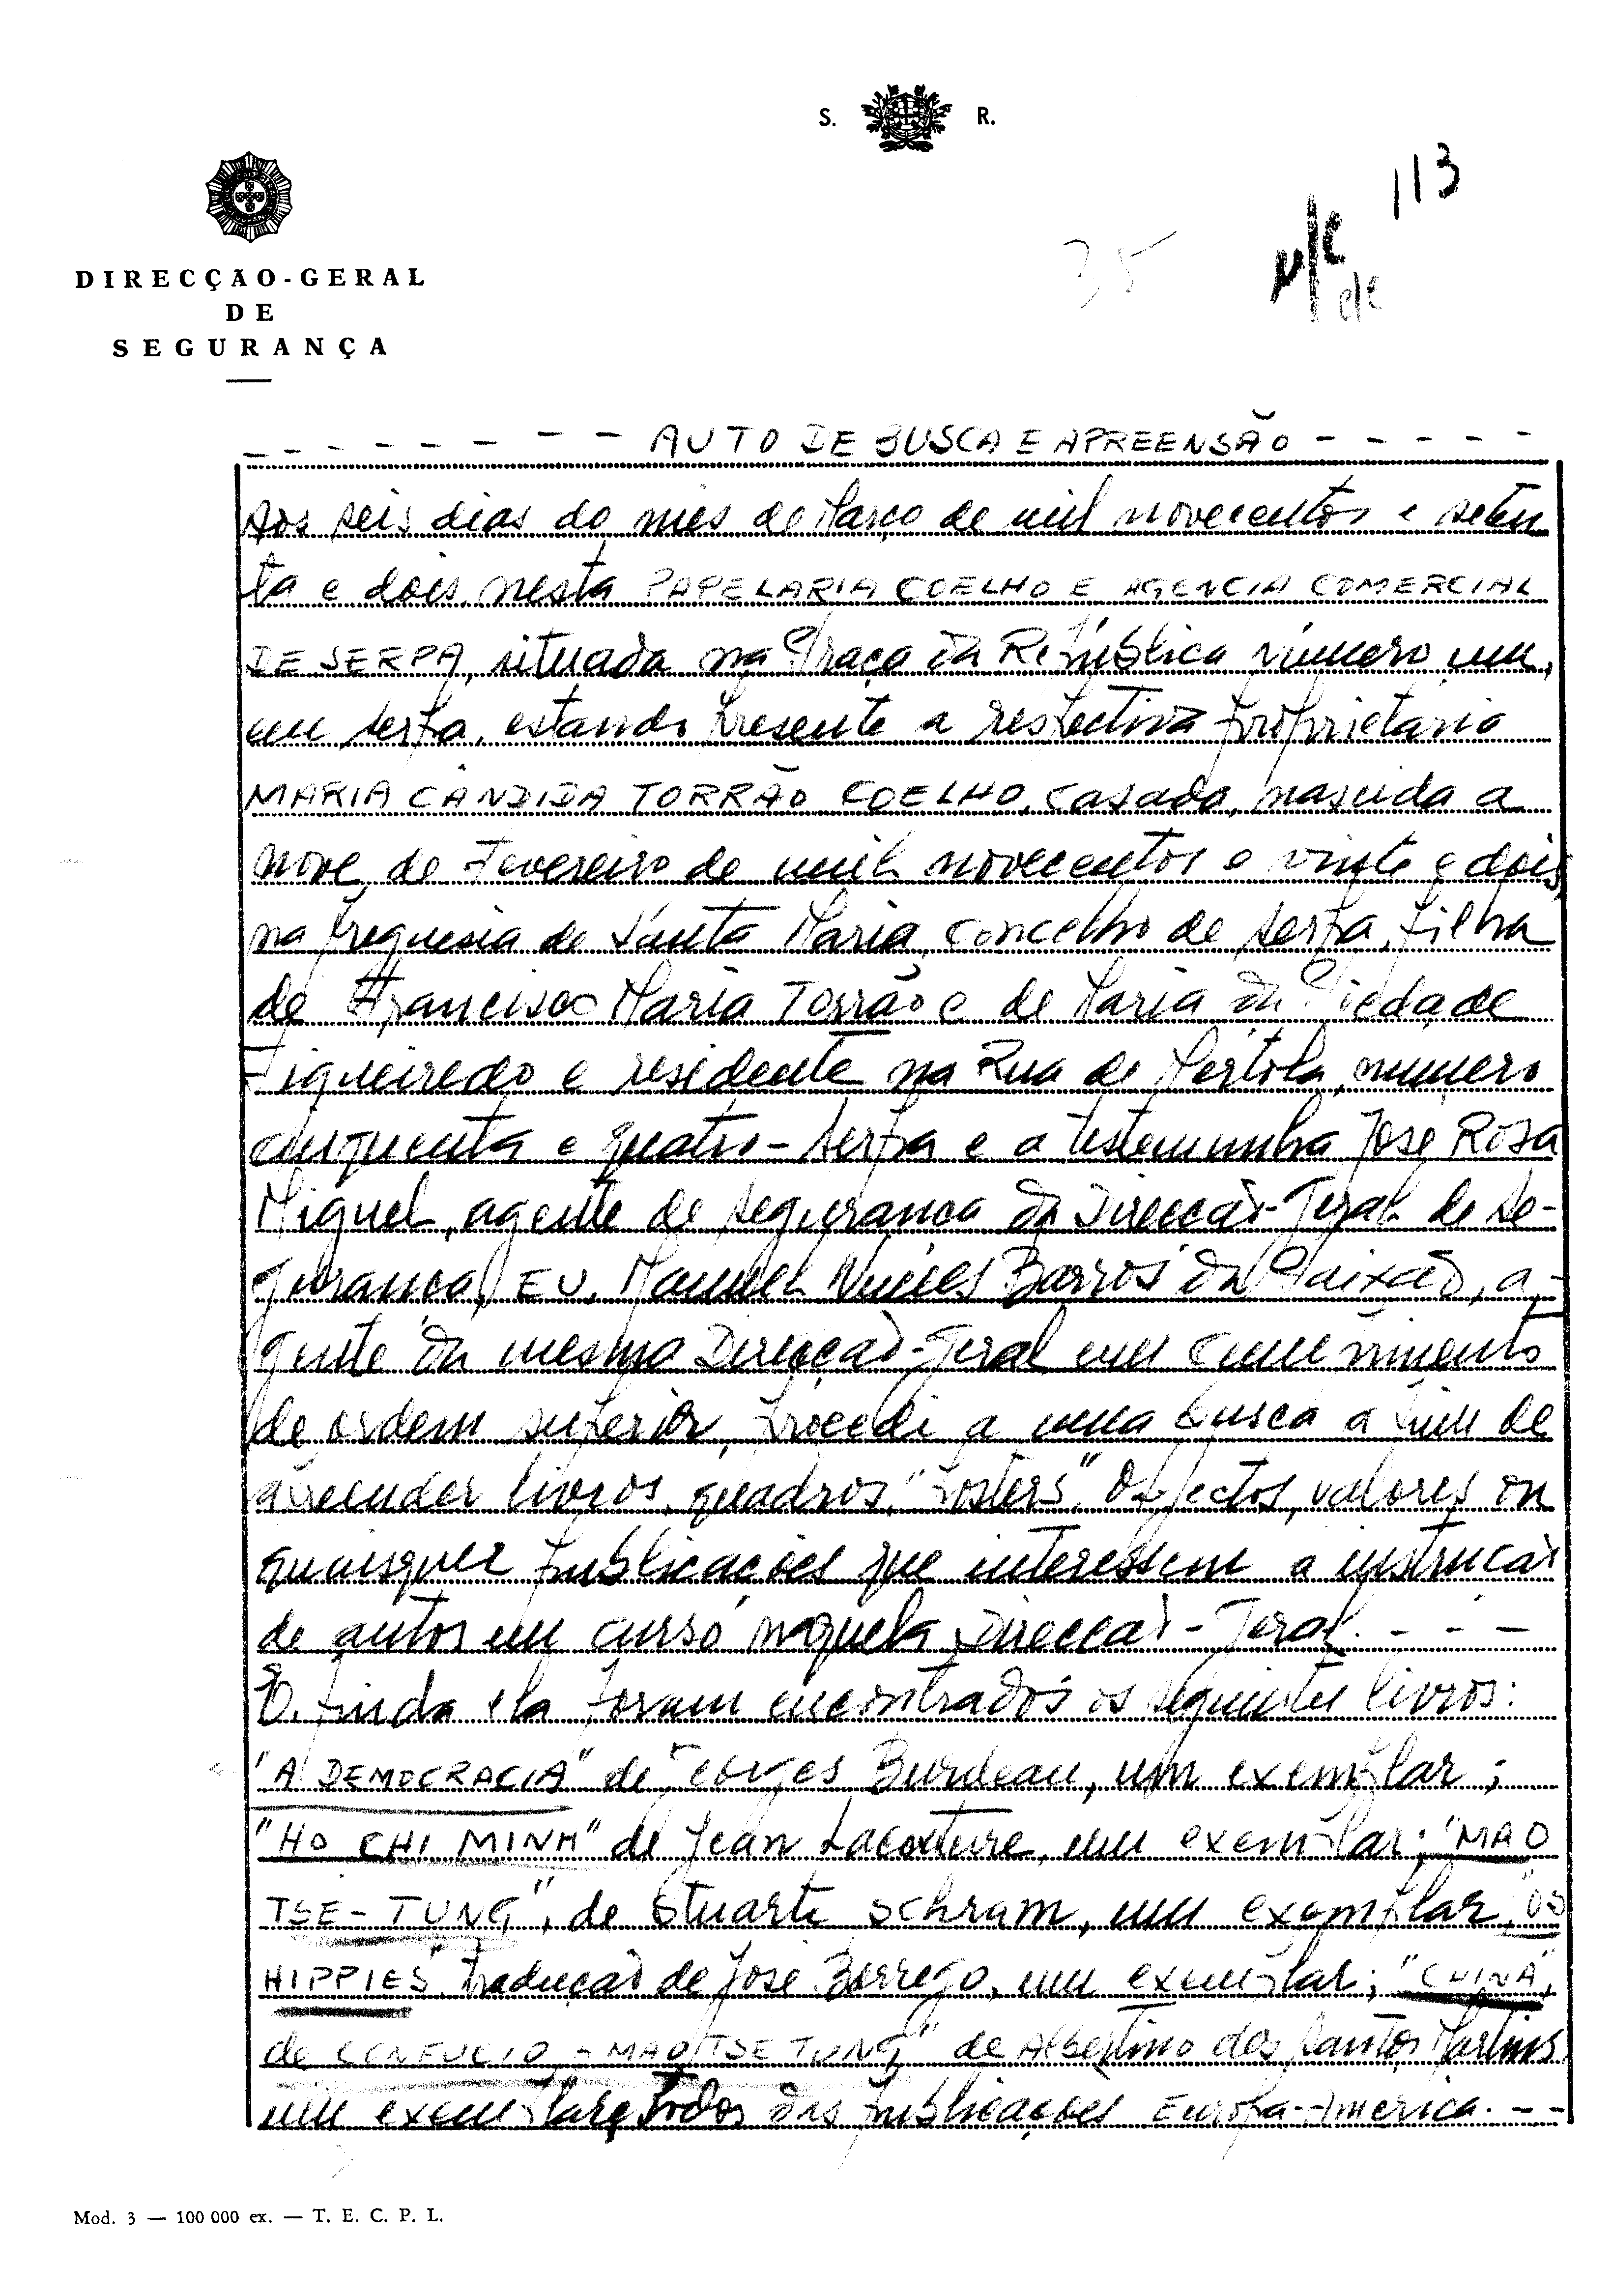 S. R.
113
35
DIRECÇÃO-GERAL
DE
SEGURANÇA
- - - - - - - - - AUTO DE BUSCA E APREENSÃO - - - - - -
Aos seis dias do mês de Março de mil novecentos e seten
ta e dois, nesta PAPELARIA COELHO E AGENCIA COMERCIAL
DE SERPA, situada na Praça da República número um,
em Serpa, estando presente a respectiva proprietaria
MARIA CÂNDIDA TORRÃO COELHO, casada, nascida a
nove de Fevereiro de mil novecentos e vinte e dois,
na freguesia de Santa Maria, concelho de Serpa, filha
de Francisco Maria Torrão e de Maria da Piedade
Figueiredo e residente na Rua de Mertola, numero
cinquenta e quatro - Serpa e a testemunha José Rosa
Miguel, agente de segurança da Direcção-Geral de Se-
gurança, EU, Manuel Nunes Barros da Paixão, a-
gente da mesma Direcção-Geral em cumprimento
de ordem superior, procedi a uma busca a fim de
apreender livros, quadros, "posters", Objectos, valores ou
quaisquer publicações que interessem a instrucão
de autos em curso naquela Direccão-Geral. - - -
E, finda ela foram encontrados os seguintes livros:
"A DEMOCRACIA" de Georges Burdeau, um exemplar;
"HO CHI MINH" de Jean Lacouture, um exemplar; "MAO
TSE-TUNG", de Stuart Schram, um exemplar, "OS
HIPPIES" traducão de José Borrego, um exemplar; "CHINA",
de CONFUCIO, A MAO TSE TUNG" de Albertino dos Santos Martins
um exemplar e todos das publicações Europa-América. - -
Mod. 3 — 100 000 ex. — T. E. C. P. L.